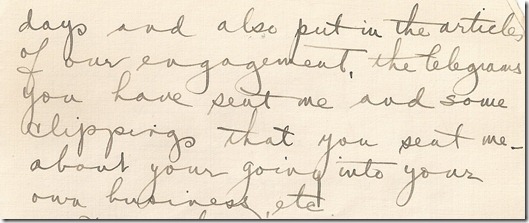 days and also put in the articles
of our engagement, the telegrams
you have sent me and some
clippings that you sent me-
about your going into your
own business, etc